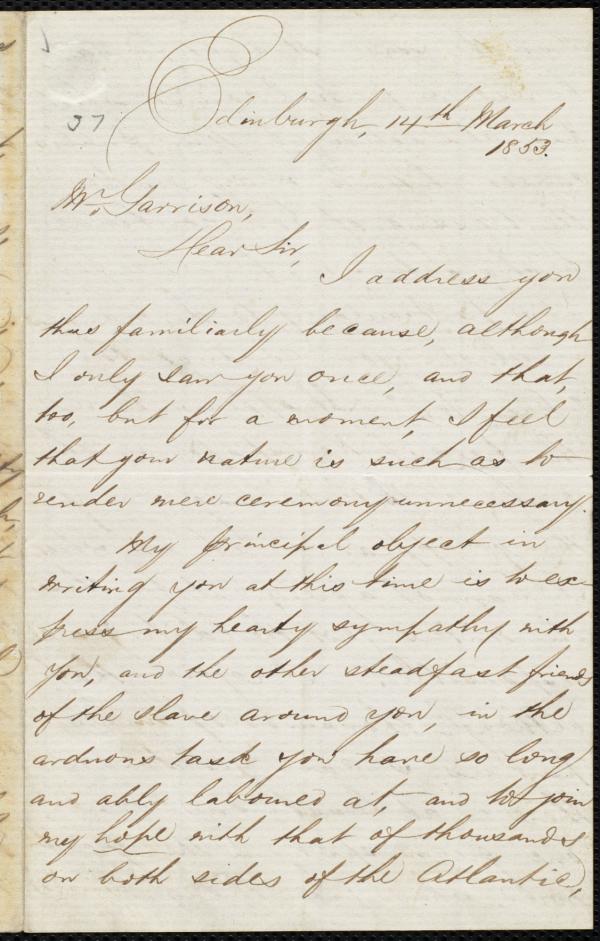 37
Edinburgh, 14th March
1853.
Mr. Garrison,
Dear Sir,
I address you
thus familiarly because, although
I only saw you once, and that,
too, but for a moment, I feel
that your nature is such as to
render mere ceremony unnecessary.
My principal object in
writing you at this time is to ex-
press my hearty sympathy with
you, and the other steadfast friends
of the slave around you, in the
arduous task you have so long
and ably laboured at, and to join
my hope with that of thousands
on both sides of the Atlantic,